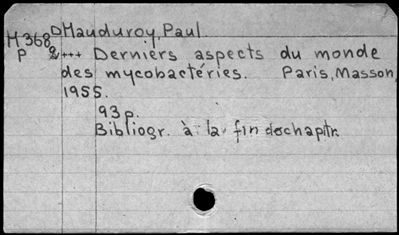 D Hauduroy, Paul
H368
P 2+++ Derniers aspects du monde
des mycobactéries. Paris, Masson,
1955.
93p.
Bibliogr. à la fin de chapitr.